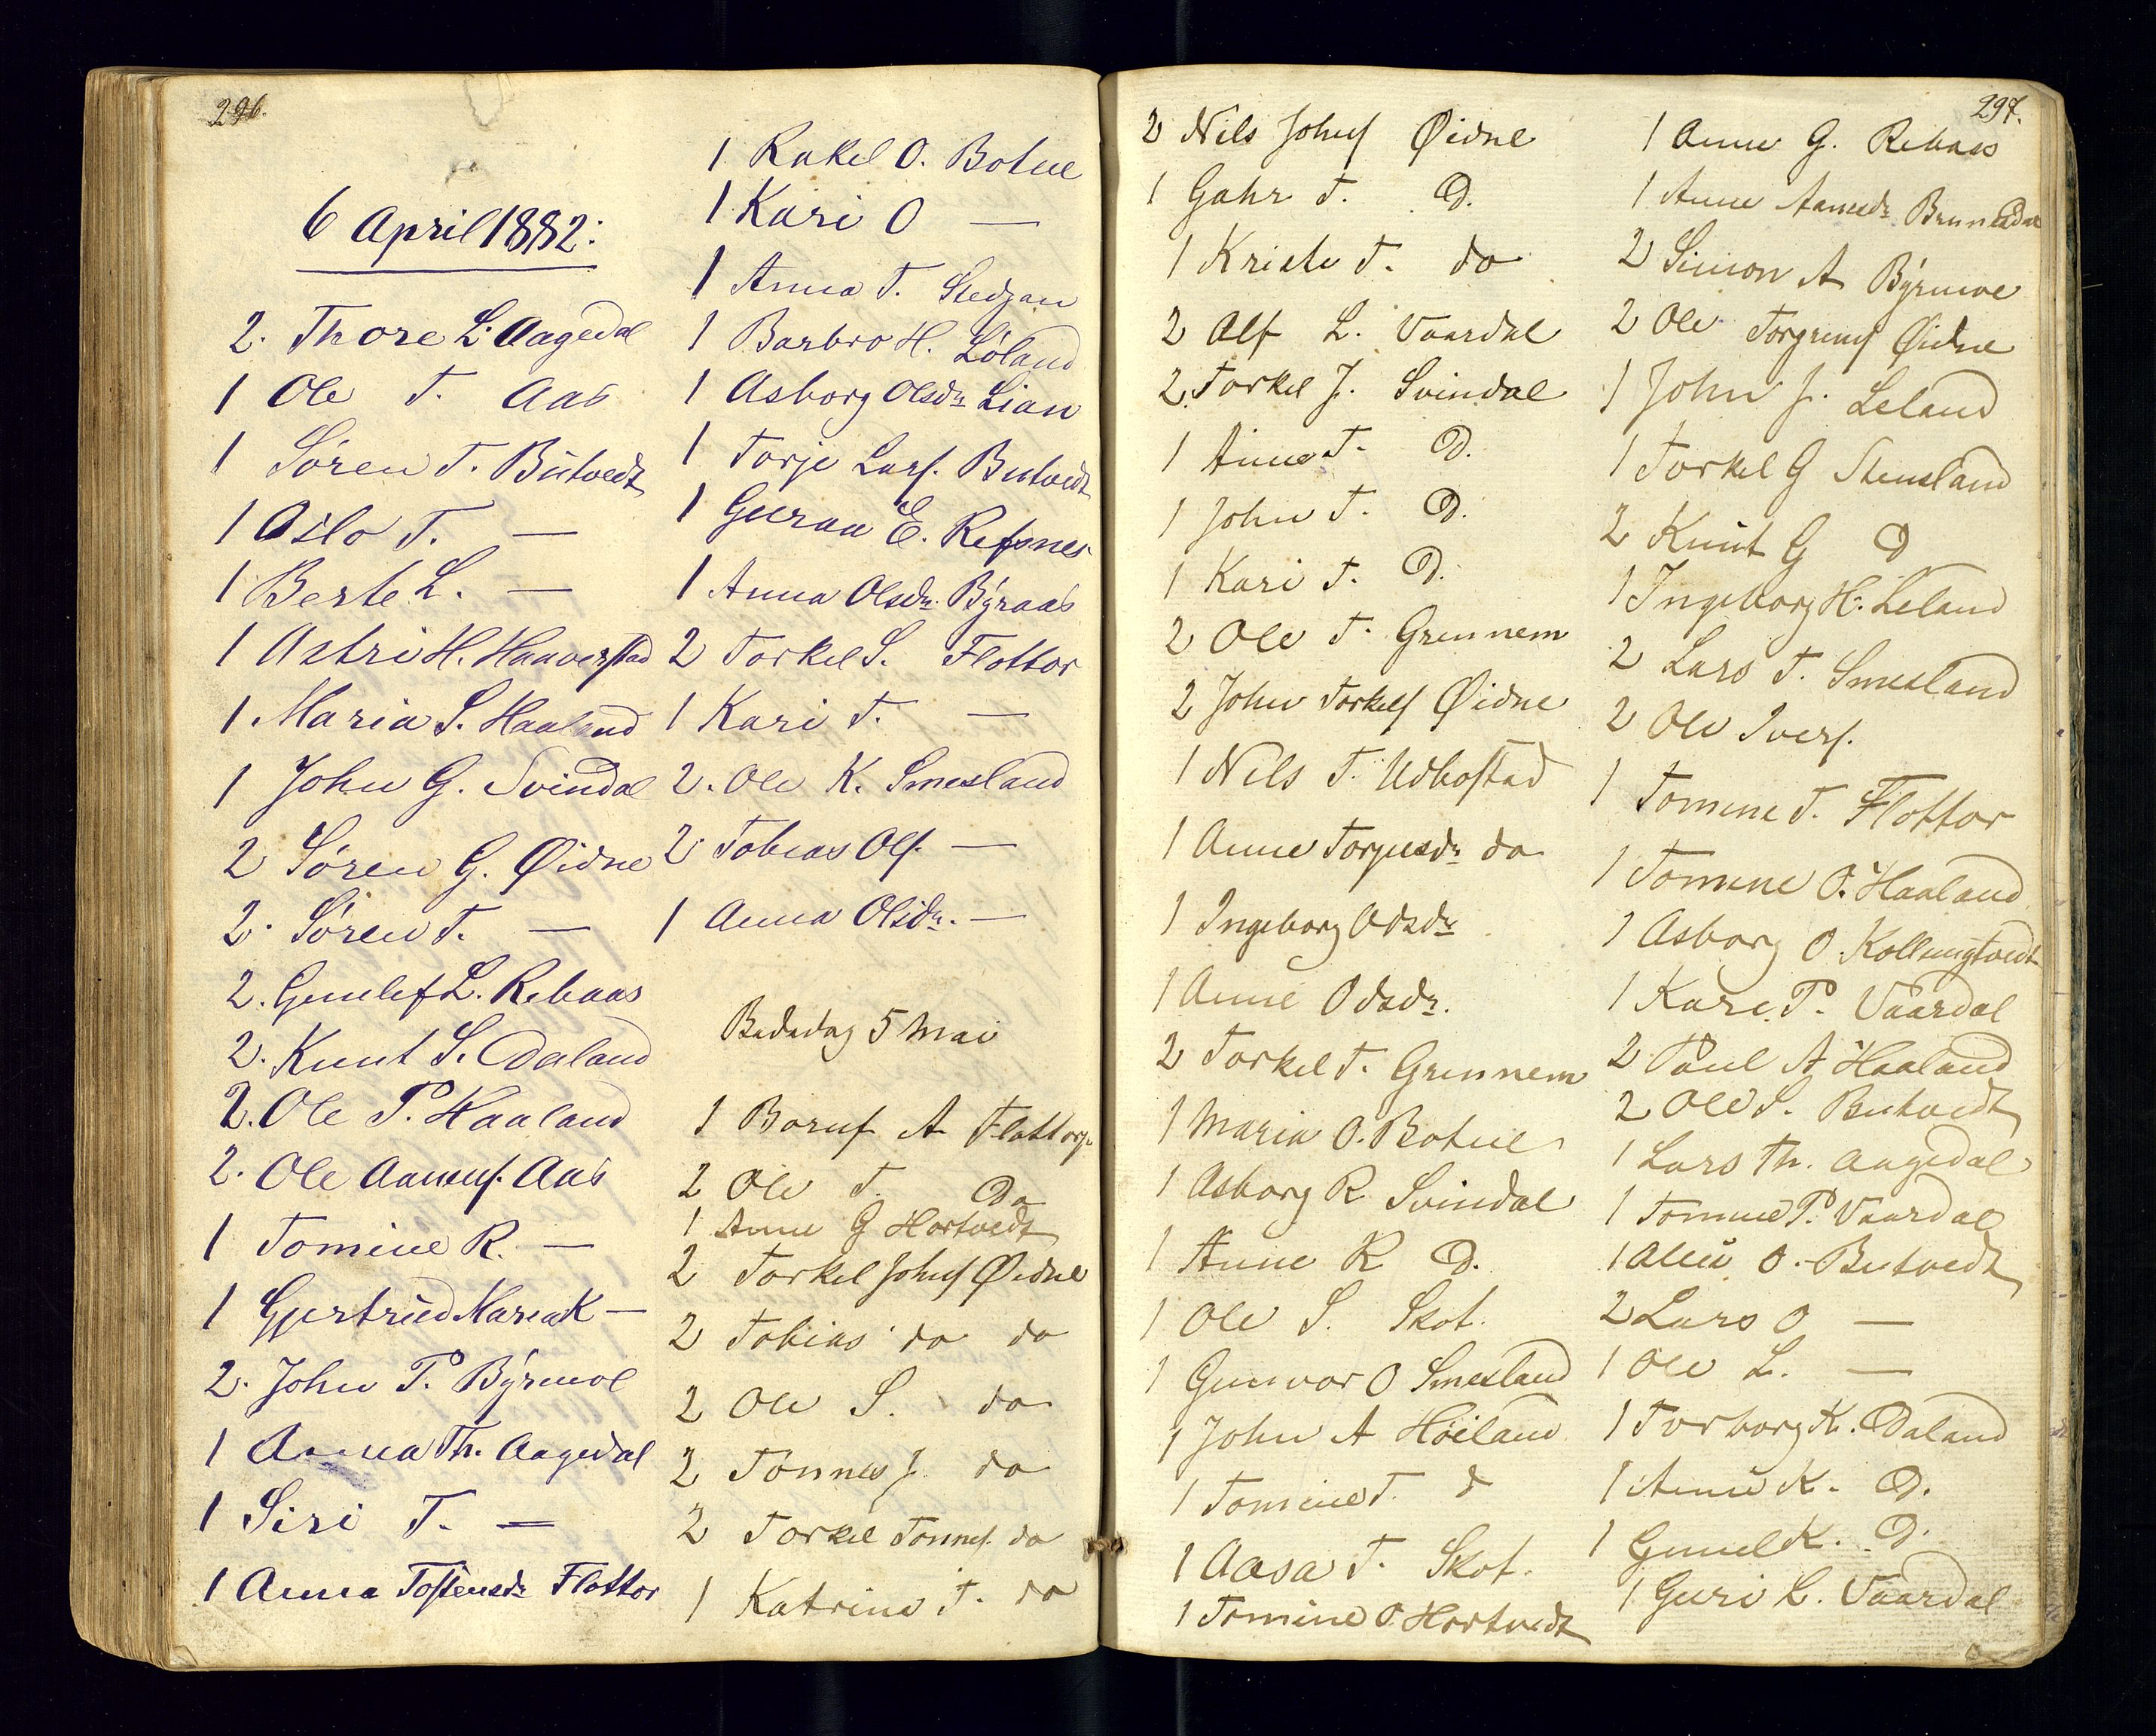 296.
6 April 1882:
2. Thore L. Aagedal
1 Ole T. Aas
1 Søren T. Butvedt
1 Aslo T. —
1 Berte L. —
1 Astri H. Haaverstad
1 Maria S. Haaland
1 John G. Svindal
2 Søren G. Øidne
2. Søren T. —
2. Gunlef L. Rebaas
2. Knut S. Daland
2. Ole P. Haaland
2. Ole Aanens. Aas
1 Tomine R. —
1 Gjertrud Maria K —
2. John P. Byrmoe
1 Anna Th. Aagedal
1 Siri T. —
1 Anna Tostensdr Flottor
1 Rakel O. Botne
1 Kari O —
1 Anna T.
1 Barbro H. Løland
1 Asborg Olsdr Lian
1 Torje Lars. Butvedt
1 Guraa E. Refsnes
1 Anna Olsdr. Byraas
2 Torkel S. Flottor
1 Kari T. —
2. Ole K. Smesland
2 Tobias Ols. —
1 Anna Olsdr. —
Bededag 5 Mai
1 A Flottorp
2 Ole T. Do
1 Anne G Hortvedt
2 Torkel Johns Øidne
2 Tobias do do
2 Ole S. do
2 Tønnes J. do
2 Torkel Tønnes. do
1 Katrine T. do
297.
2 Nils Johns Øidne
1 Gahr T. D.
1 Kriste T. do
2 Alf L. Vaardal
2. Torkel J. Svindal
1 Anne T. D.
1 John T. D.
1 Kari T. D.
2 Ole T. Grunnem
2 John Torkels Øidne
1 Nils T. Udbostad
1 Anne Torjusdr do
1 Ingeborg Odsdr
1 Anne Odsdr.
2 Torkel T. Grunnem
1 Maria O. Botne
1 Asborg R Svindal
1 Anne R D.
1 Ole S. Skot.
1 Gunvor O Smesland
1 John A Høiland
1 Tomine T. d
1 Aasa T. Skot.
1 Tomine O. Hortvedt
1 Anne G. Rebaas
1 Anne Aanesdr
2 Simon A Byrmoe
2 Ole Torgrims Øidne
1 John J. Leland
1 Torkel G Stensland
2 Knut G D
1 Ingeborg H. Leland
2 Lars T. Smesland
2 Ole Ivers.
1 Tomine T. Flottor
1 Tomine O. Haaland
1 Asborg O. Kollungtvedt
1 Kare P. Vaardal
2 Paul A Haaland
2 Ole S. Butvedt
1 Lars Th. Aagedal
1 Tomine P. Vaardal
1 O. Butvedt
2 Lars O —
1 Ole L. —
1 Torborg K. Daland
1 Anne K. D.
1 Gunil K. D.
1 Guri L. Vaardal